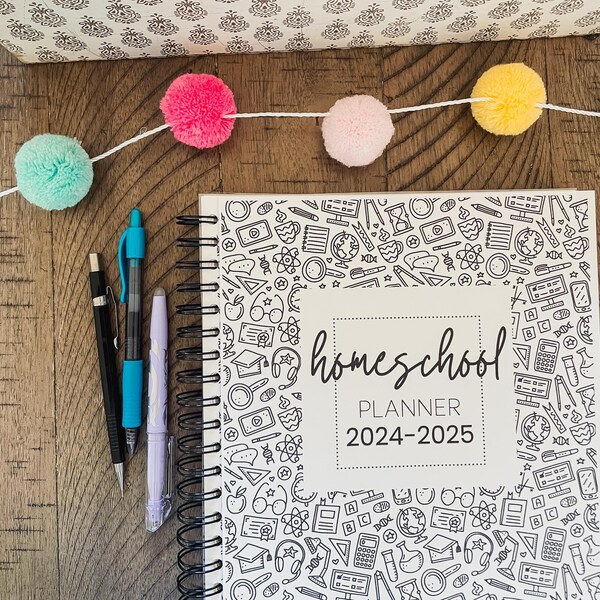 homeschool
PLANNER
2024-2025